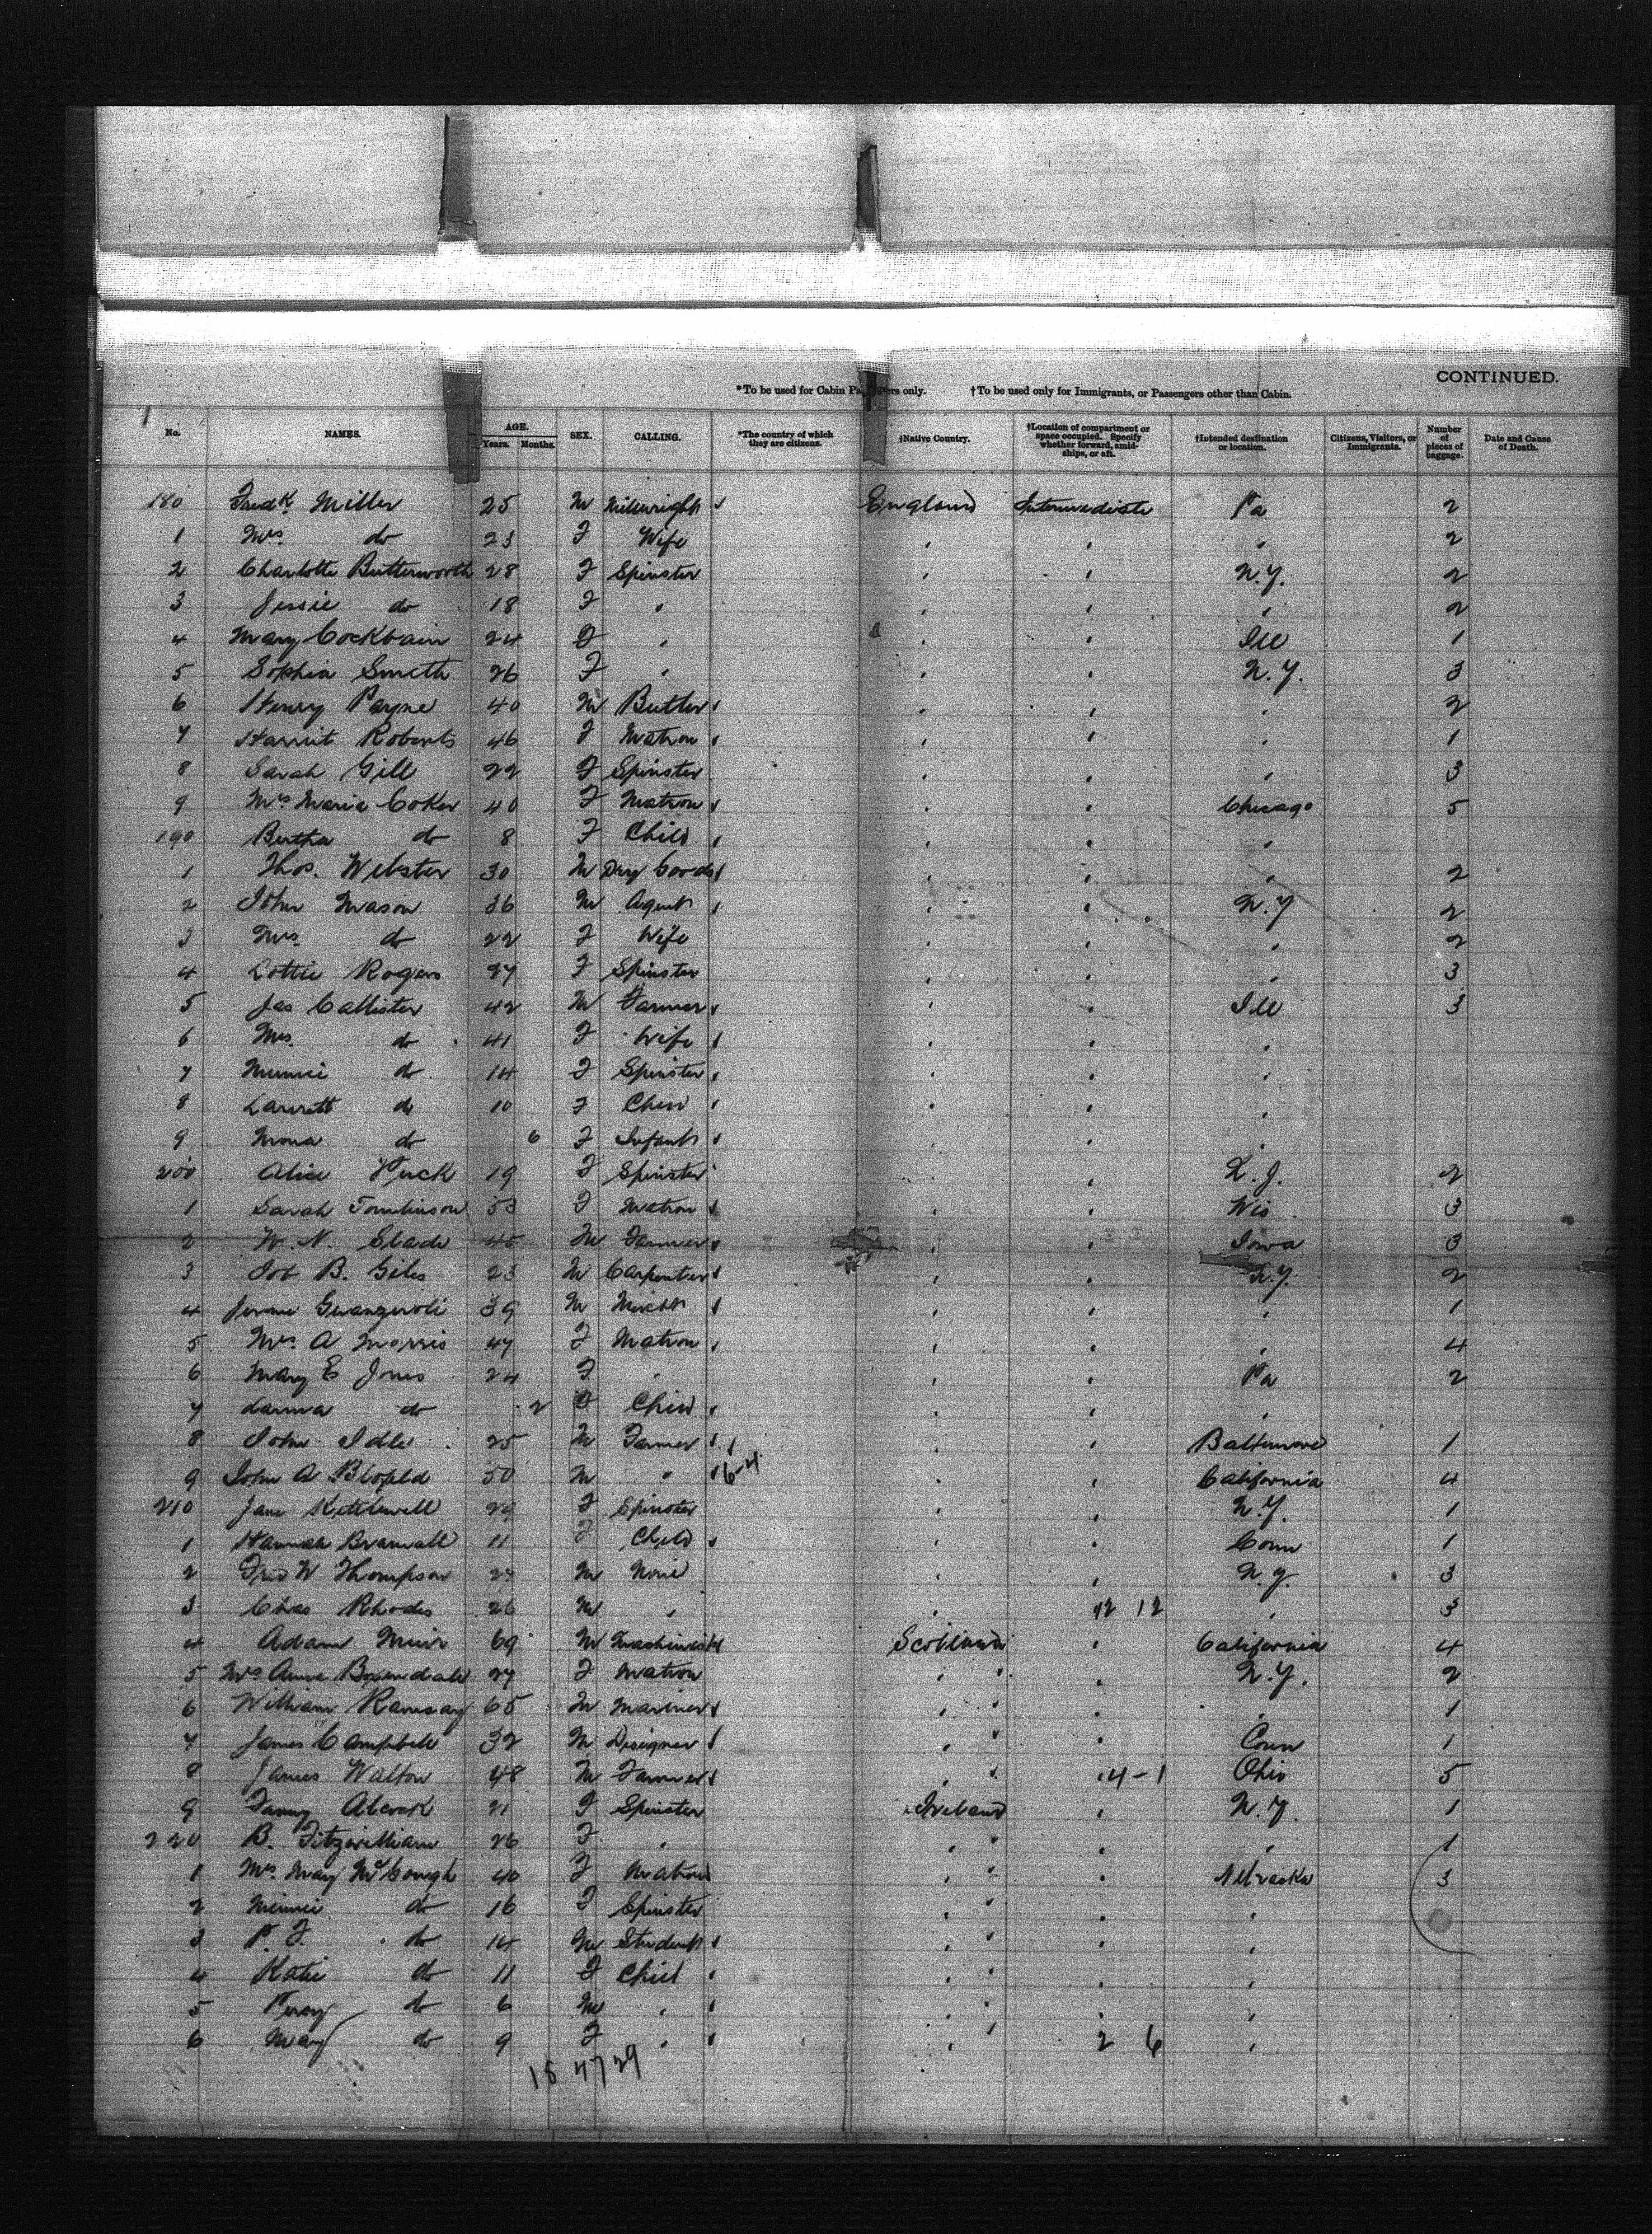 CONTINUED.
*To be used for Cabin Passengers only. †To be used only for Immigrants, or Passengers other than Cabin.
No. NAMES. AGE. Years. Months. SEX. CALLING. *The country of which they are citizens. †Native Country. †Location of compartment or space occupied. Specify whether forward, amidships, or aft. †Intended destination or location. Citizens, Visitors, or Immigrants. Number of pieces of baggage. Date and Cause of Death.
180 Fredk Miller 25 M Millwright England Intermediate Pa 2
1 Mrs. do 23 F Wife 2
2 Charlotte Butterworth 28 F Spinster N.Y. 2
3 Jessie do 18 F 2
4 Mary Cockbain 24 F Ill 1
5 Sophia Smith 26 F N.Y. 3
6 Henry Payne 40 M Butler 2
7 Harriet Roberts 46 F Matron 1
8 Sarah Gill 22 F Spinster 3
9 Mrs Maria Coker 40 F Matron Chicago 5
190 Bertha do 8 F Child
1 Thos. Webster 30 M Dry Goods 2
2 John Mason 36 M Agent N.Y 2
3 Mrs. do 22 F Wife 2
4 Lottie Rogers 27 F Spinster 3
5 Jas Callister 42 M Farmer Ill 3
6 Mrs. do 41 F Wife
7 do 14 F Spinster
8 do 10 F Child
9 Mona do 6 F Infant
200 Alice Tuck 19 F Spinster 2
1 Sarah Tomlinson 53 F Matron Wis 3
2 W. N. Slade 45 M Farmer Iowa 3
3 Job B. Giles 23 M Carpenter N.Y. 2
4 39 M 1
5 Mrs. A Morris 47 F Matron 4
6 Mary E Jones 24 F Pa 2
7 do 2 F Child
8 John Idle 25 M Farmer Baltimore 1
9 John A Blofeld 50 M " 6-4 California 4
210 Jane Kettlewell 29 F Spinster N.Y. 1
1 Hannah Bramall 11 F Child Conn 1
2 Fred W Thompson 27 M None N.Y. 3
3 Chas Rhodes 26 M 12 12 3
4 Adam Muir 69 M Machinist Scotland California 4
5 Mrs Anna Baxendale 27 F Matron N.Y. 2
6 William Ramsay 65 M Mariner 1
7 James Campbell 32 M Designer Conn 1
8 James Walton 48 M Farmer 4-1 Ohio 5
9 Fanny Alcock 21 F Spinster Ireland N.Y. 1
220 B. Fitzwilliam 26 F 1
1 Mrs. May McGough 40 F Matron Nebraska 3
2 Minnie do 16 F Spinster
3 P. F. do 14 M Student
4 Katie do 11 F Child
5 do 6 M
6 May do 9 F 2 6
18 47 29